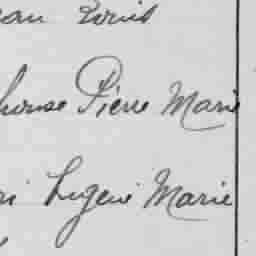 ean Louis
honse Pierre Marie
ri Eugène Marie